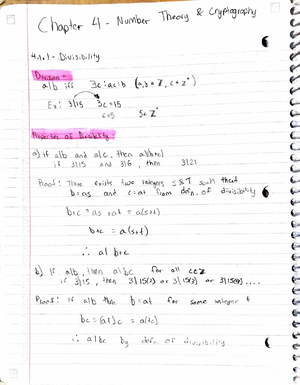 Chapter 4 - Number Theory & Cryptography
4.1.1 - Divisibility
Division -
a|b iff ∃c: ac=b (a,b ∈ Z, c ∈ Z⁺)
Ex: 3|15 3c=15
c=5 5 ∈ Z⁺
Properties of Divisibility
a) if a|b and a|c, then a|(b+c)
if 3|15 and 3|6, then 3|21
Proof: There exists two integers s&t such that
b=as and c=at from defn. of divisibility
b+c = as+at = a(s+t)
b+c = a(s+t)
∴ a|b+c
b) if a|b, then a|bc for all c∈Z
if 3|15, then 3|15(2) or 3|15(3) or 3|15(4)....
Proof: if a|b then b=at for some integer t
bc=(at)c = a(tc)
∴ a|bc by defn of divisibility